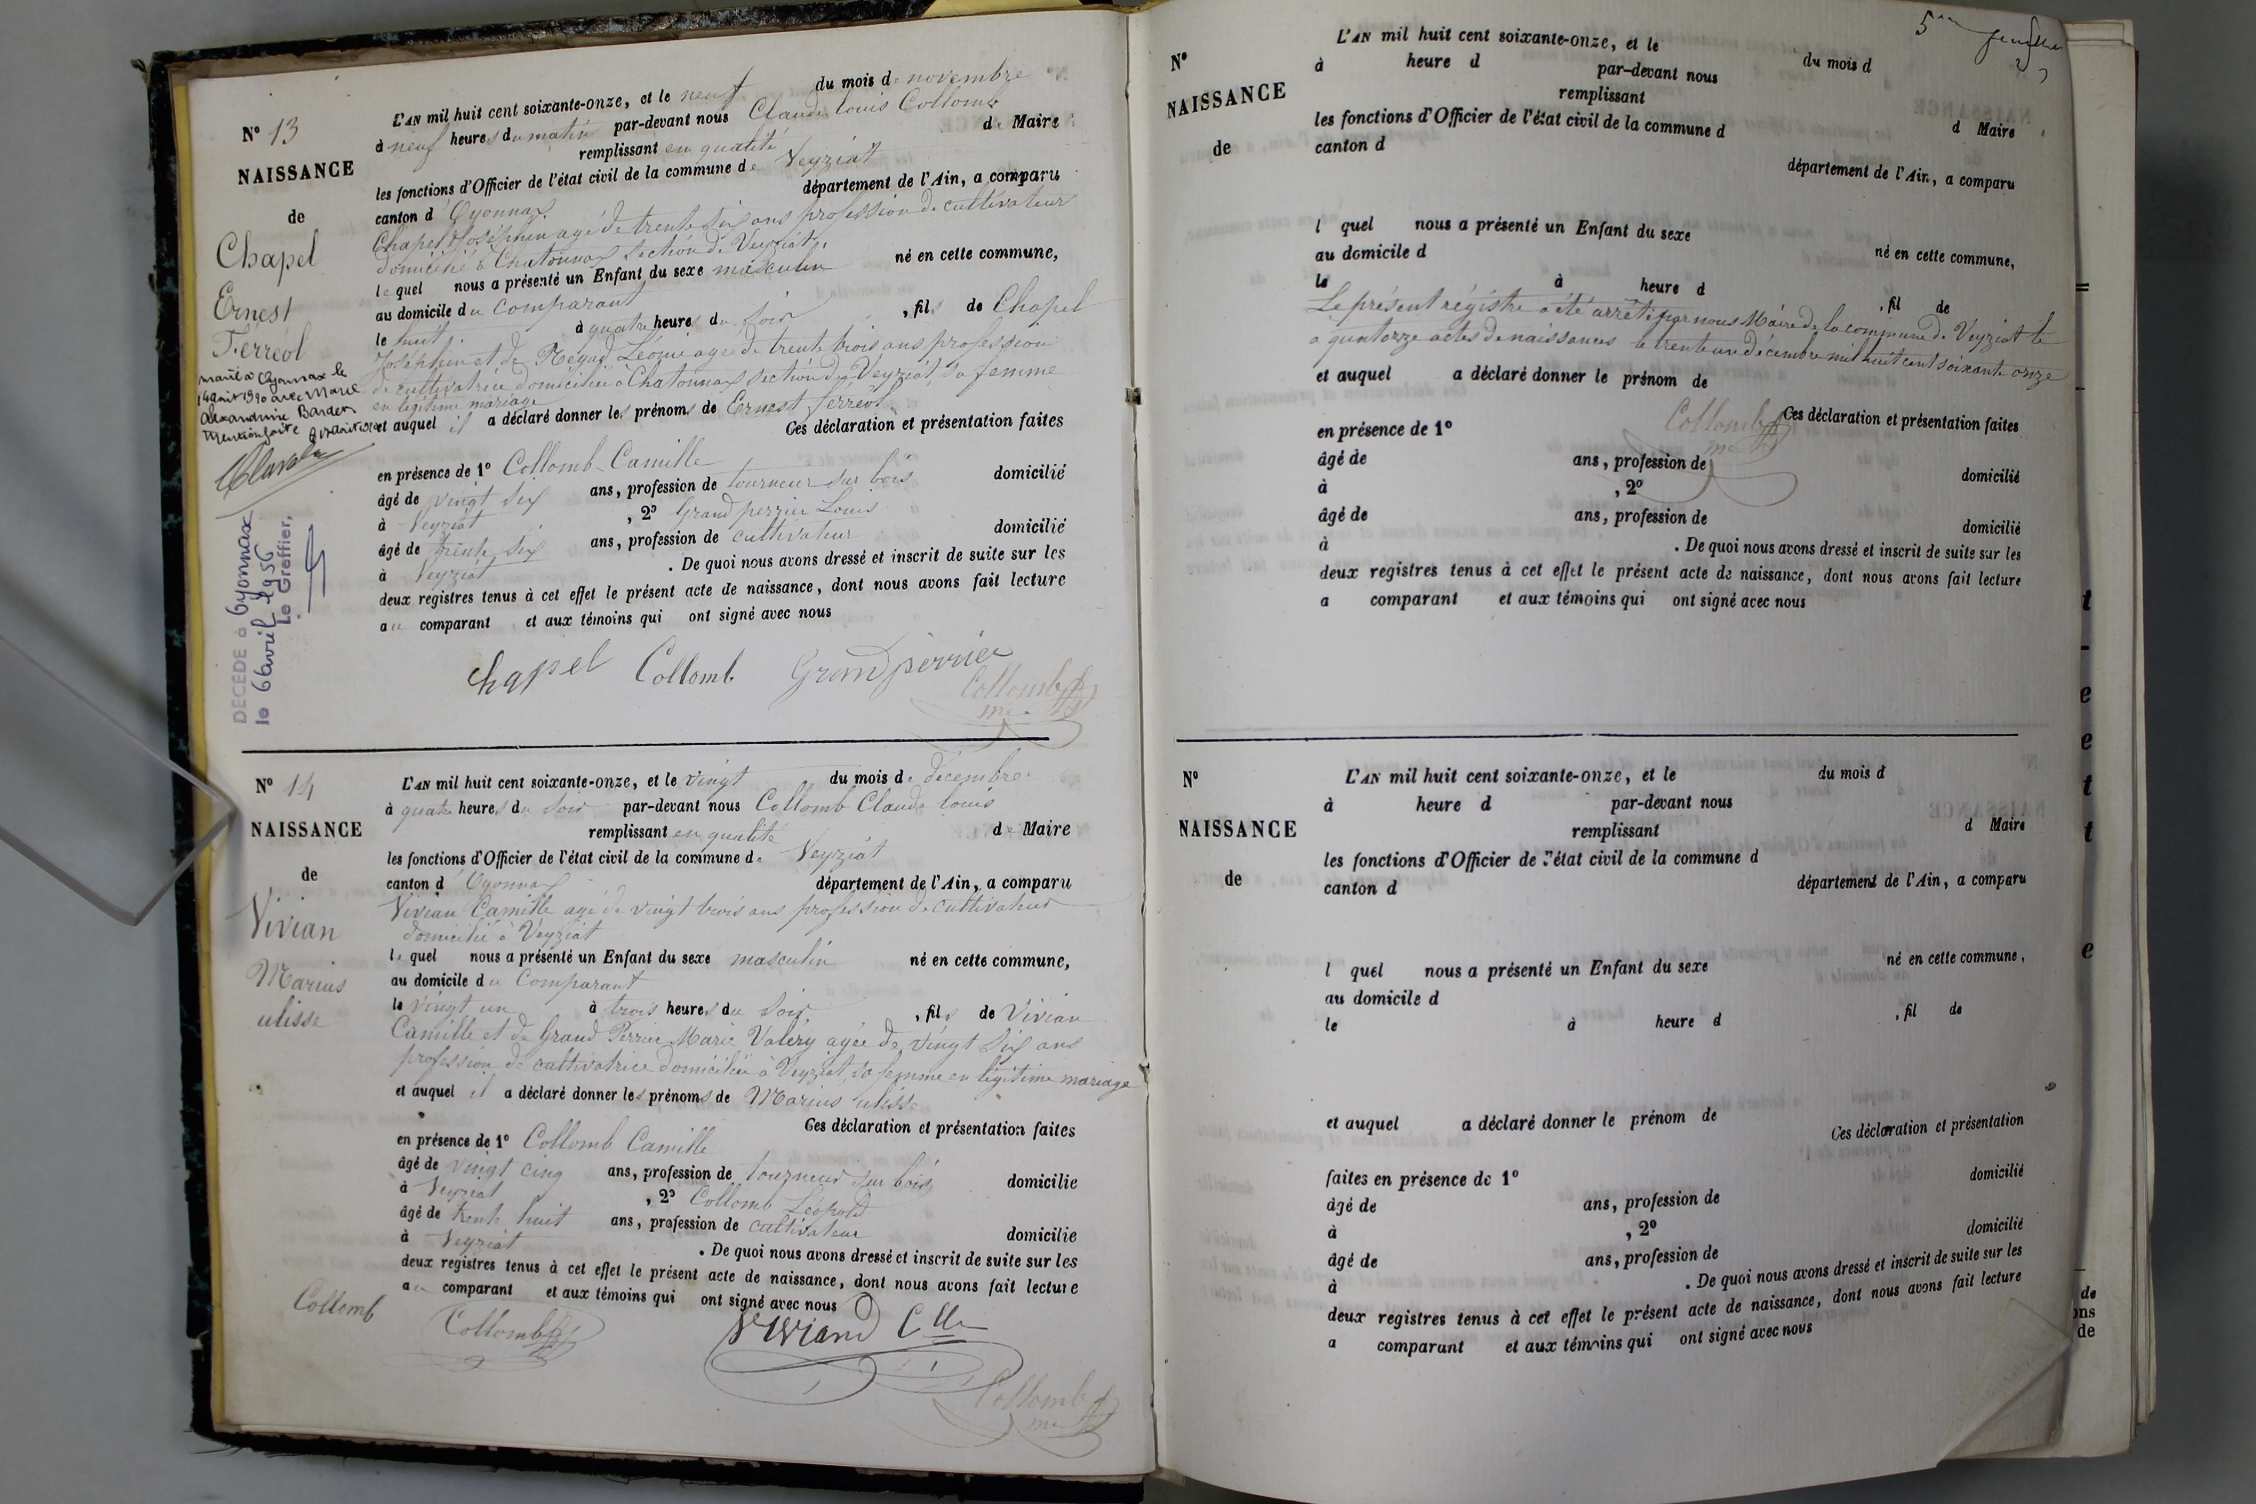 N° 13
NAISSANCE
de
Chapel
Ernest
Ferréol
marié à Oyonnax le
14 août 1920 avec Marie
Alexandrine
Mention faite
DÉCÉDÉ à Oyonnax
le 6 avril 1956
Le Greffier,
L'AN mil huit cent soixante-onze, et le neuf du mois de novembre
à neuf heures du matin par-devant nous Claude Louis Collomb
remplissant en qualité de Maire
les fonctions d'Officier de l'état civil de la commune de Veyziat
canton d'Oyonnax département de l'Ain, a comparu
Chapel Joséphin agé de trente six ans profession de cultivateur
domicilié à Chatonnax section de Veyziat
lequel nous a présenté un Enfant du sexe masculin né en cette commune,
au domicile du comparant
le huit à quatre heures du soir, fils de Chapel
Joséphin et de Régad Léonie agée de trente trois ans profession
de cultivatrice domiciliée à Chatonnax section de Veyziat, sa femme
en légitime mariage
et auquel il a déclaré donner les prénoms de Ernest ferréol
Ces déclaration et présentation faites
en présence de 1° Collomb Camille
âgé de vingt six ans, profession de tourneur sur bois domicilié
à Veyziat, 2° Grand perrier Louis
âgé de trente six ans, profession de cultivateur domicilié
à Veyziat. De quoi nous avons dressé et inscrit de suite sur les
deux registres tenus à cet effet le présent acte de naissance, dont nous avons fait lecture
au comparant et aux témoins qui ont signé avec nous
chapel Collomb Grandperrier
Collomb
N° 14
NAISSANCE
de
Vivian
Marius
ulisse
L'AN mil huit cent soixante-onze, et le vingt du mois de décembre
à quatre heures du soir par-devant nous Collomb Claude louis
remplissant en qualité de Maire
les fonctions d'Officier de l'état civil de la commune de Veyziat
canton d'Oyonnax département de l'Ain, a comparu
Vivian Camille agé de vingt trois ans profession de cultivateur
domicilié à Veyziat
lequel nous a présenté un Enfant du sexe masculin né en cette commune,
au domicile du Comparant
le vingt un à trois heures du soir, fils de Vivian
Camille et de Grand Perrier Marie Valéry agée de vingt six ans
profession de cultivatrice domiciliée à Veyziat, sa femme en légitime mariage
et auquel il a déclaré donner les prénoms de Marius ulisse
Ces déclaration et présentation faites
en présence de 1° Collomb Camille
âgé de vingt cinq ans, profession de tourneur sur bois domicilié
à Veyziat, 2° Collomb Léopold
âgé de trente huit ans, profession de cultivateur domicilié
à Veyziat. De quoi nous avons dressé et inscrit de suite sur les
deux registres tenus à cet effet le présent acte de naissance, dont nous avons fait lecture
au comparant et aux témoins qui ont signé avec nous
Collomb Collomb Viviand Clle
Collomb
N°
NAISSANCE
de
L'AN mil huit cent soixante-onze, et le du mois d
à heure d par-devant nous
remplissant d Maire
les fonctions d'Officier de l'état civil de la commune d
canton d département de l'Ain, a comparu
l quel nous a présenté un Enfant du sexe né en cette commune,
au domicile d
le à heure d, fil de
Le présent régistre a été arrêté par nous Maire de la commune de Veyziat le
a quatorze actes de naissances le trente un décembre mil huit cent soixante onze
et auquel a déclaré donner le prénom de
Collomb
Ces déclaration et présentation faites
en présence de 1°
âgé de ans, profession de domicilié
à, 2°
âgé de ans, profession de domicilié
à. De quoi nous avons dressé et inscrit de suite sur les
deux registres tenus à cet effet le présent acte de naissance, dont nous avons fait lecture
a comparant et aux témoins qui ont signé avec nous
N°
NAISSANCE
de
L'AN mil huit cent soixante-onze, et le du mois d
à heure d par-devant nous
remplissant d Maire
les fonctions d'Officier de l'état civil de la commune d
canton d département de l'Ain, a comparu
l quel nous a présenté un Enfant du sexe né en cette commune,
au domicile d
le à heure d, fil de
et auquel a déclaré donner le prénom de
Ces déclaration et présentation
faites en présence de 1°
âgé de ans, profession de domicilié
à, 2°
âgé de ans, profession de domicilié
à. De quoi nous avons dressé et inscrit de suite sur les
deux registres tenus à cet effet le présent acte de naissance, dont nous avons fait lecture
a comparant et aux témoins qui ont signé avec nous